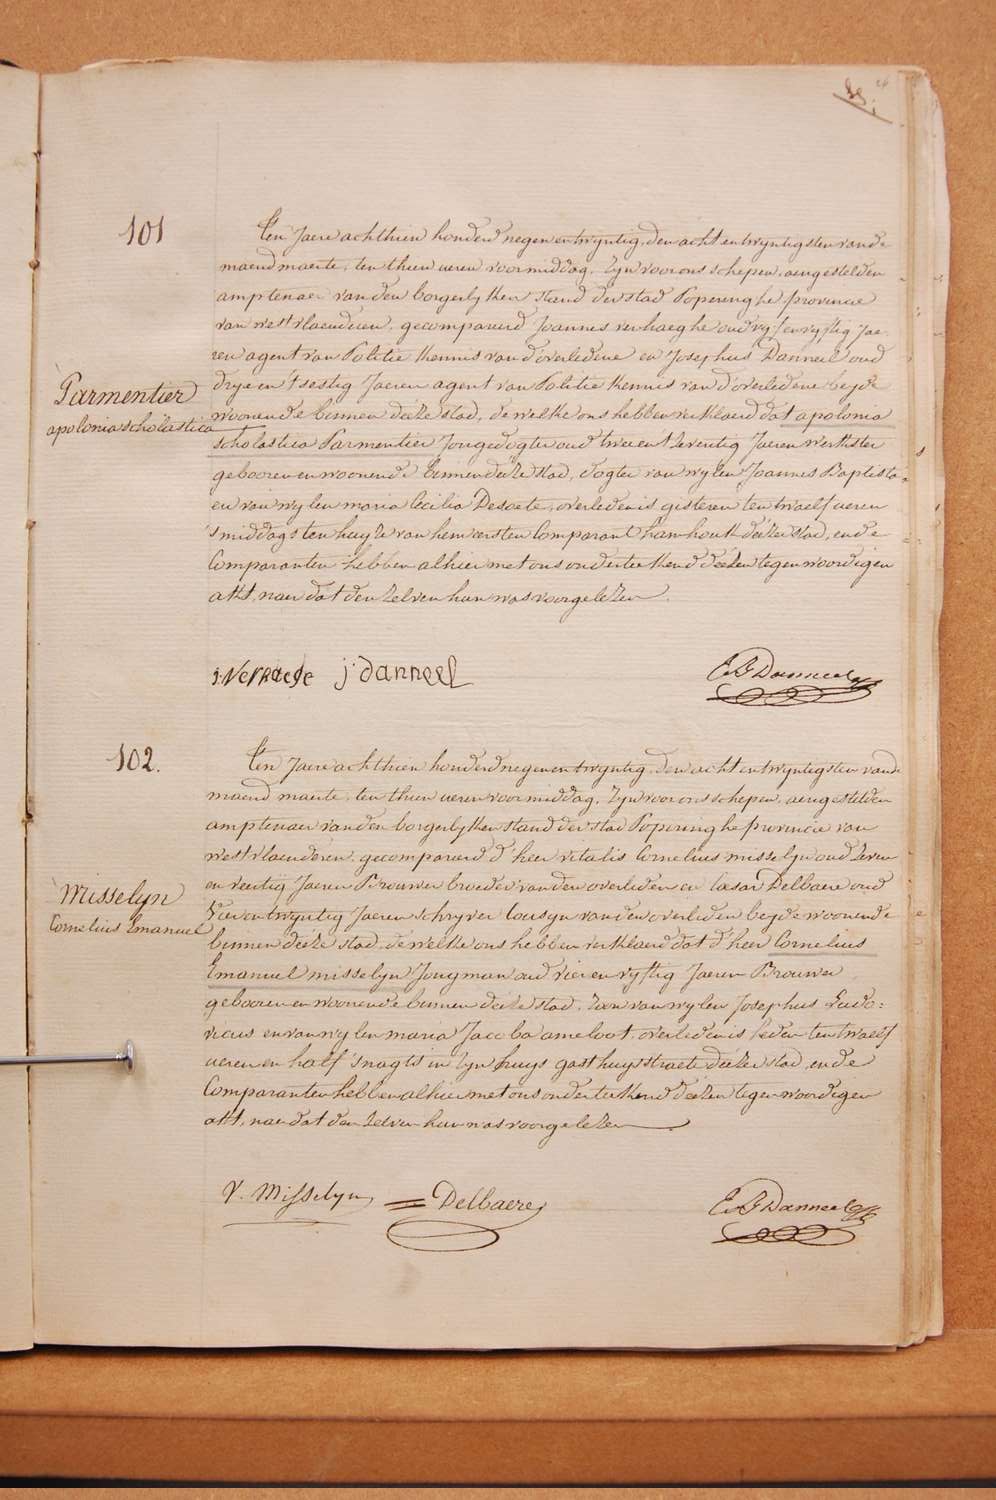 101
Parmentier
apolonia scholastica
Ten Jaere achthien honderd negen en twyntig, den acht en twyntigsten van de
maend maerte, ten thien ueren voormiddag, Zyn voor ons schepen, aengestelden
amptenaer van den borgerlyken stand der stad Poperinghe provincie
van westvlaenderen, gecompareerd Joannes verhaeghe oud vyf en vyftig Jae-
ren agent van Politie Kennis van d'overledene en Josephus Danneel oud
drye en 't sestig Jaeren agent van Politie Kennis van d'overledene beyde
woonende binnen deéze stad, de welke ons hebben verklaerd dat apolonia
scholastica Parmentier Jongedogter oud twee en 't zeventig Jaeren werkster
gebooren en woonende binnen deéze stad, dogter van wylen Joannes Baptista
en van wylen maria Cecilia Desaete, overleden is gisteren ten twaelf ueren
's middags ten huyze van hem eersten Comparant hamhoek deézer stad, en de
Comparanten hebben alhier met ons onderteekend deézen tegenwoordigen
akt, naer dat den zelven hun was voorgelezen.
j: Verhaege j: danneel
102.
Misselyn
Cornelius Emanuel
Ten Jaere achthien honderd negen en twyntig, den acht en twyntigsten van de
maend maerte, ten thien ueren voormiddag, Zyn voor ons schepen, aengestelden
amptenaer van den borgerlyken stand der stad Poperinghe provincie van
westvlaenderen, gecompareerd d'heer vitalis Cornelius misselyn oud zeven
en veertig Jaeren Brouwer broeder van den overleden en Cesar Delbaere oud
vier en twyntig Jaeren schryver Cousyn van den overleden beyde woonende
binnen deéze stad, de welke ons hebben verklaerd dat d'heer Cornelius
Emanuel misselyn Jongman oud vier en vyftig Jaeren Brouwer
gebooren en woonende binnen deéze stad, zoon van wylen Josephus Ludo=
vicus en van wylen maria Jacoba ameloot, overleden is heden ten twaelf
ueren en half 's nagts in zyn huys gasthuysstraete deézer stad, en de
Comparanten hebben alhier met ons onderteekend deézen tegenwoordigen
akt, naer dat den zelven hun was voorgelezen
V. Misselyn Delbaere